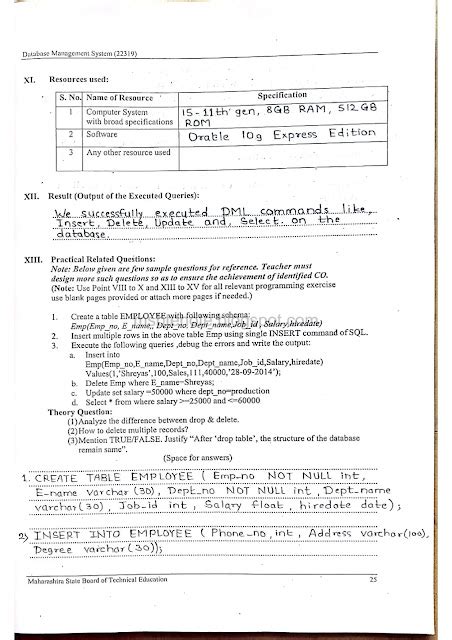 Database Management System (22319)
XI. Resources used:
S. No. Name of Resource Specification
1 Computer System with broad specifications i5-11th gen, 8GB RAM, 512 GB ROM
2 Software Oracle 10g Express Edition
3 Any other resource used
XII. Result (Output of the Executed Queries):
We successfully executed DML commands like,
Insert, Delete, Update and, Select. on the
database.
XIII. Practical Related Questions:
Note: Below given are few sample questions for reference. Teacher must
design more such questions so as to ensure the achievement of identified CO.
(Note: Use Point VIII to X and XIII to XV for all relevant programming exercise
use blank pages provided or attach more pages if needed.)
1. Create a table EMPLOYEE with following schema:
Emp(Emp_no, E_name, Dept_no, Dept_name,Job_id , Salary,hiredate)
2. Insert multiple rows in the above table Emp using single INSERT command of SQL.
3. Execute the following queries ,debug the errors and write the output:
a. Insert into
Emp(Emp_no,E_name,Dept_no,Dept_name,Job_id,Salary,hiredate)
Values(1,'Shreyas',100,Sales,111,40000,'28-09-2014');
b. Delete Emp where E_name=Shreyas;
c. Update set salary =50000 where dept_no=production
d. Select * from where salary >=25000 and <=60000
Theory Question:
(1)Analyze the difference between drop & delete.
(2)How to delete multiple records?
(3)Mention TRUE/FALSE. Justify "After 'drop table', the structure of the database
remain same".
(Space for answers)
1. CREATE TABLE EMPLOYEE ( Emp-no NOT NULL int,
E-name varchar (30), Dept_no NOT NULL int, Dept-name
varchar (30), Job-id int, Salary float, hiredate date);
2) INSERT INTO EMPLOYEE ( Phone_no, int, Address varchar(100),
Degree varchar (30));
Maharashtra State Board of Technical Education 25